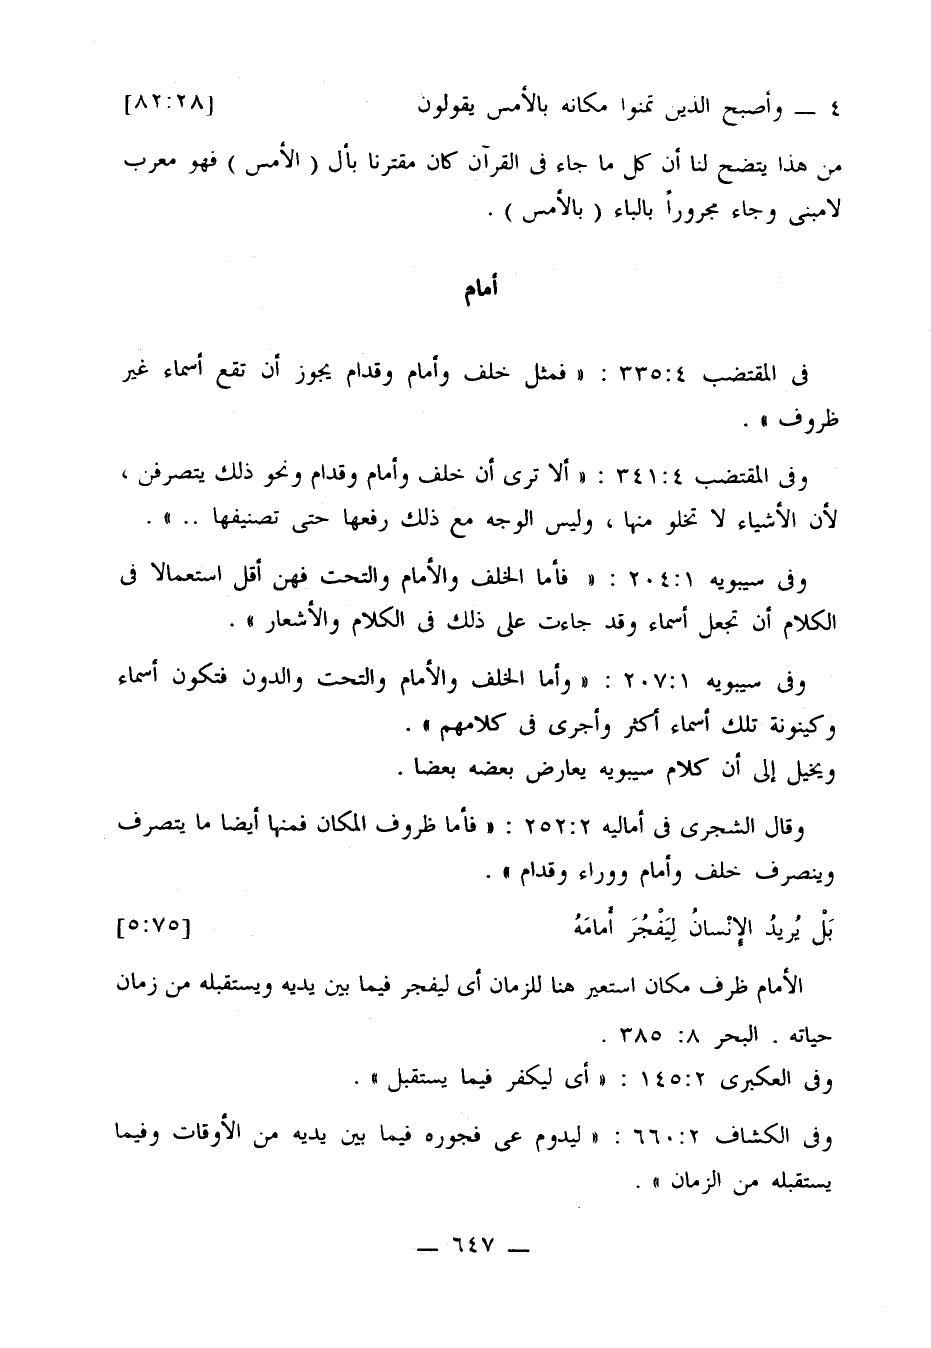 ٤ — وأصبح الذين تمنوا مكانه بالأمس يقولون [٨٢:٢٨]
من هذا يتضح لنا أن كل ما جاء فى القرآن كان مقترنا بأل ( الأمس ) فهو معرب
لامبنى وجاء مجروراً بالباء ( بالأمس ) .
أمام
فى المقتضب ٣٣٥:٤ : « فمثل خلف وأمام وقدام يجوز أن تقع أسماء غير
ظروف » .
وفى المقتضب ٣٤١:٤ : « ألا ترى أن خلف وأمام وقدام ونحو ذلك يتصرفن ،
لأن الأشياء لا تخلو منها ، وليس الوجه مع ذلك رفعها حتى تصنيفها .. » .
وفى سيبويه ٢٠٤:١ : « فأما الخلف والأمام والتحت فهن أقل استعمالا فى
الكلام أن تجعل أسماء وقد جاءت على ذلك فى الكلام والأشعار » .
وفى سيبويه ٢٠٧:١ : « وأما الخلف والأمام والتحت والدون فتكون أسماء
وكينونة تلك أسماء أكثر وأجرى فى كلامهم » .
ويخيل إلى أن كلام سيبويه يعارض بعضه بعضا .
وقال الشجرى فى أماليه ٢٥٢:٢ : « فأما ظروف المكان فمنها أيضا ما يتصرف
وينصرف خلف وأمام ووراء وقدام » .
بَلْ يُرِيدُ الإِنْسانُ لِيَفْجُرَ أَمامَهُ [٥:٧٥]
الأمام ظرف مكان استعير هنا للزمان أى ليفجر فيما بين يديه ويستقبله من زمان
حياته . البحر ٨: ٣٨٥ .
وفى العكبرى ١٤٥:٢ : « أى ليكفر فيما يستقبل » .
وفى الكشاف ٦٦٠:٢ : « ليدوم عى فجوره فيما بين يديه من الأوقات وفيما
يستقبله من الزمان » .
— ٦٤٧ —